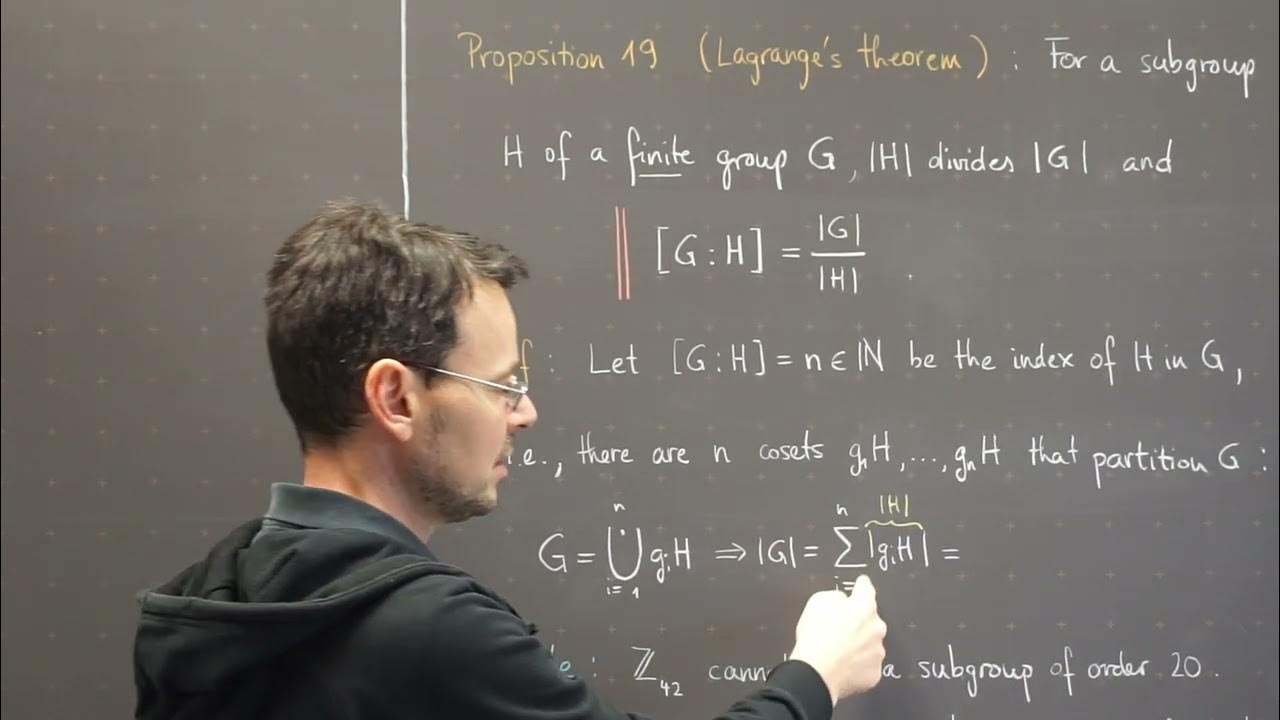 Proposition 19 (Lagrange's theorem) : For a subgroup
H of a finite group G, |H| divides |G| and
[G : H] = |G| / |H| .
: Let [G : H] = n ∈ ℕ be the index of H in G,
i.e., there are n cosets g₁H, ..., gₙH that partition G :
|H|
G = ⋃̇ᵢ₌₁ⁿ gᵢH ⇒ |G| = ∑ⁿ |gᵢH| =
: ℤ₄₂ a subgroup of order 20.